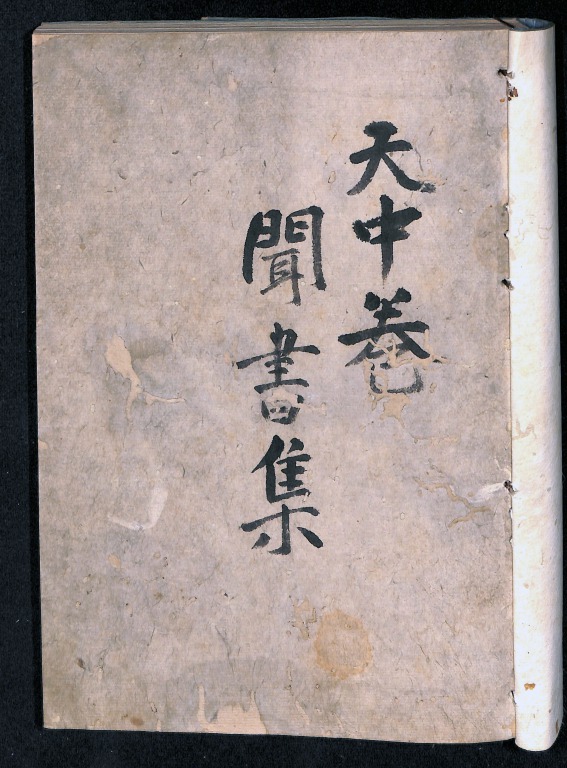 天中巻
聞書集